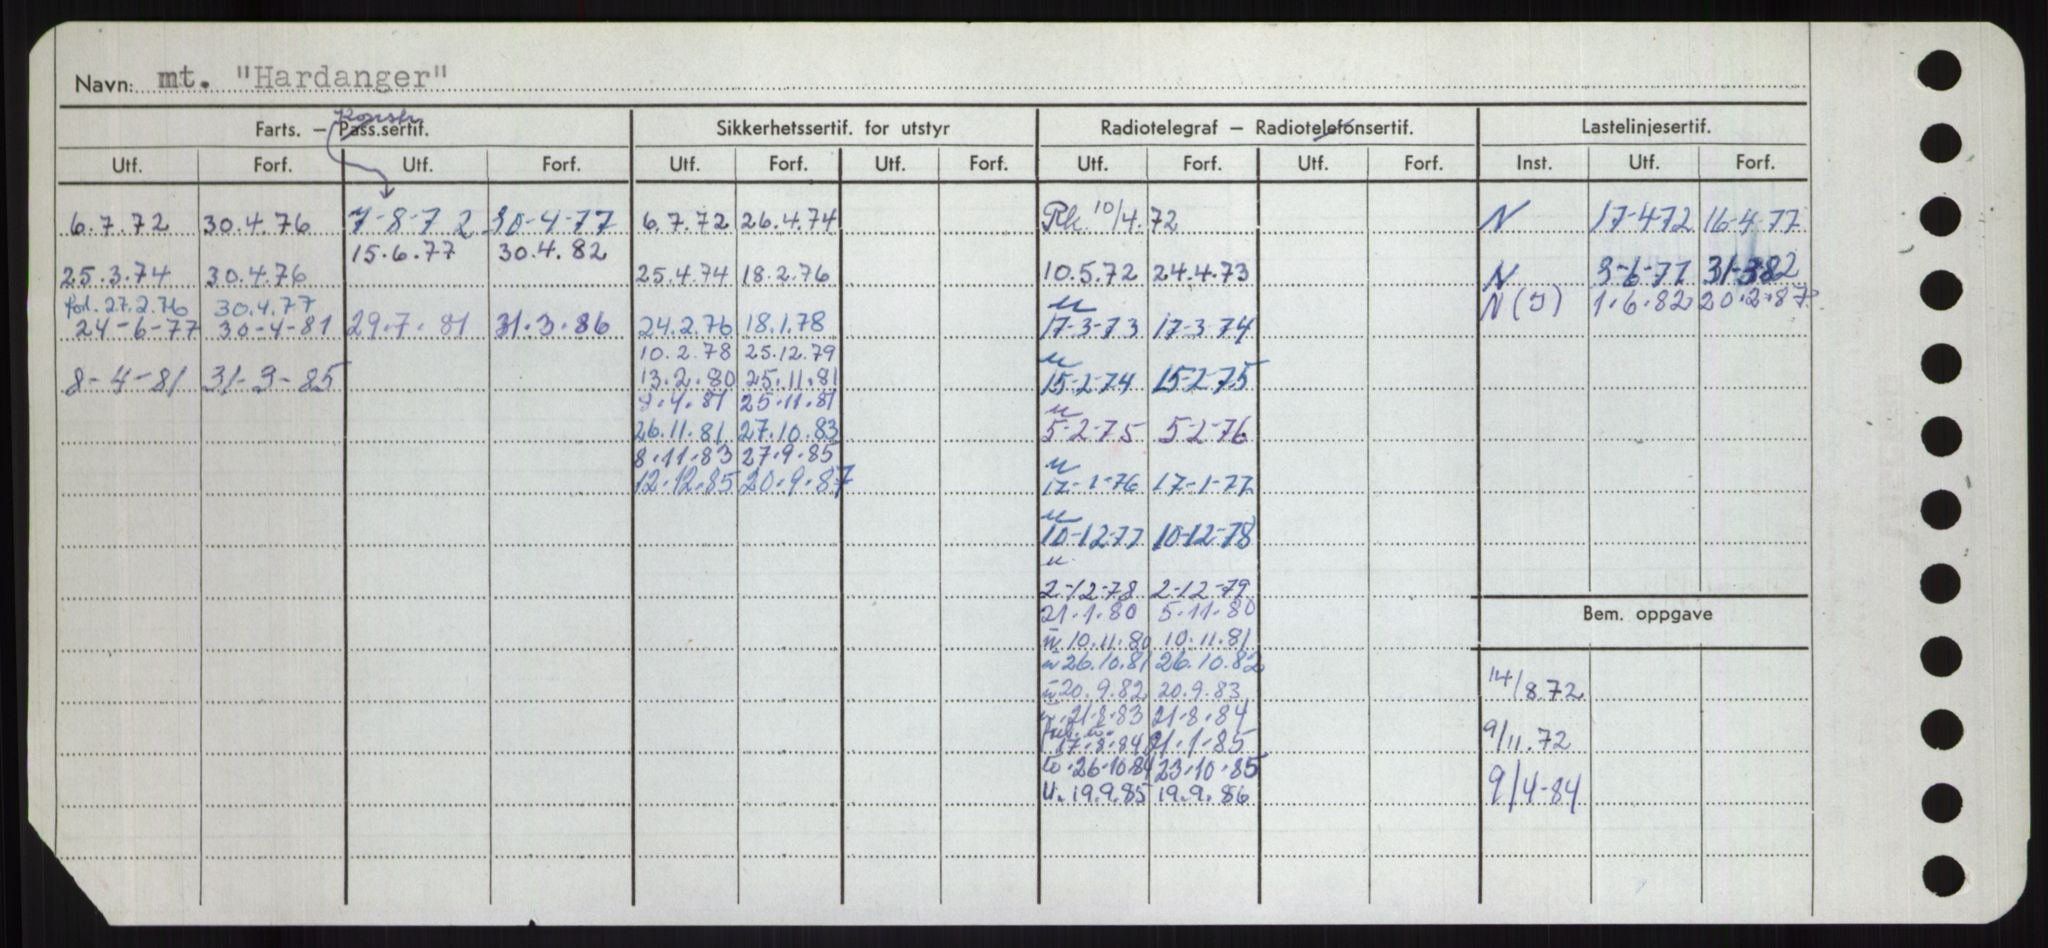 Navn: mt. "Hardanger"
Konstr.
Farts. – Pass.sertif. Sikkerhetssertif. for utstyr Radiotelegraf – Radiotelefonsertif. Lastelinjesertif.
Utf. Forf. Utf. Forf. Utf. Forf. Utf. Forf. Utf. Forf. Utf. Forf. Inst. Utf. Forf.
6.7.72 30.4.76 7-8-72 30-4-77 6.7.72 26.4.74 Rk. 10/4.72 N 17-4-72 16-4-77
15.6.77 30.4.82
25.3.74 30.4.76 25.4.74 18.2.76 10.5.72 24.4.73 N 3-6-77 31-3-82
27.2.76 30.4.77 u N (J) 1.6.82 20.2.87
24-6-77 30-4-81 29.7.81 31.3.86 24.2.76 18.1.78 17-3-73 17-3-74
10.2.78 25.12.79 u
8-4-81 31-3-85 13.2.80 25.11.81 15-2-74 15-2-75
8.4.81 25.11.81 u
26.11.81 27.10.83 5-2-75 5-2-76
8.11.83 27.9.85 u
12.12.85 20.9.87 17-1-76 17-1-77
u
10-12-77 10-12-78
u
2-12-78 2-12-79
21.1.80 5.11.80 Bem. oppgave
u. 10.11.80 10.11.81
u 26.10.81 26.10.82
u 20.9.82 20.9.83 14/8.72
u. 21.8.83 21.8.84
u.
17.8.84 21.1.85 9/11.72
to. 26.10.84 23.10.85
U. 19.9.85 19.9.86 9/4-84